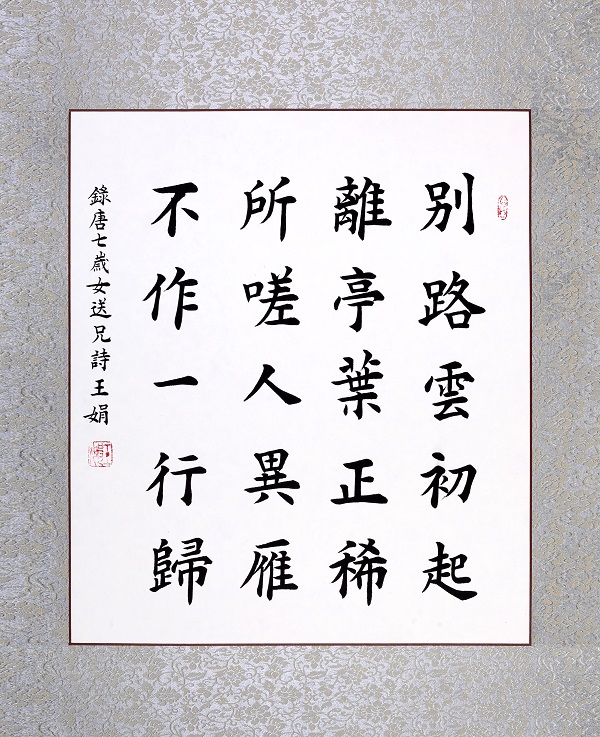 別路雲初起
離亭葉正稀
所嗟人異雁
不作一行歸
錄唐七歲女送兄詩王娟